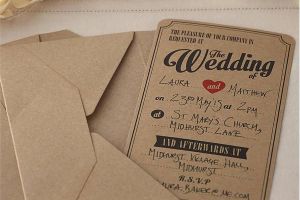 THE PLEASURE OF YOUR COMPANY IS
REQUESTED AT
The
Wedding
of
LAURA MATTHEW
ON 23RD MAY '15 AT 2PM
AT ST MARY'S CHURCH,
MIDHURST LANE
AND AFTERWARDS AT
MIDHURST VILLAGE HALL,
MIDHURST
R.S.V.P
LAURA.BAKER@ME.COM